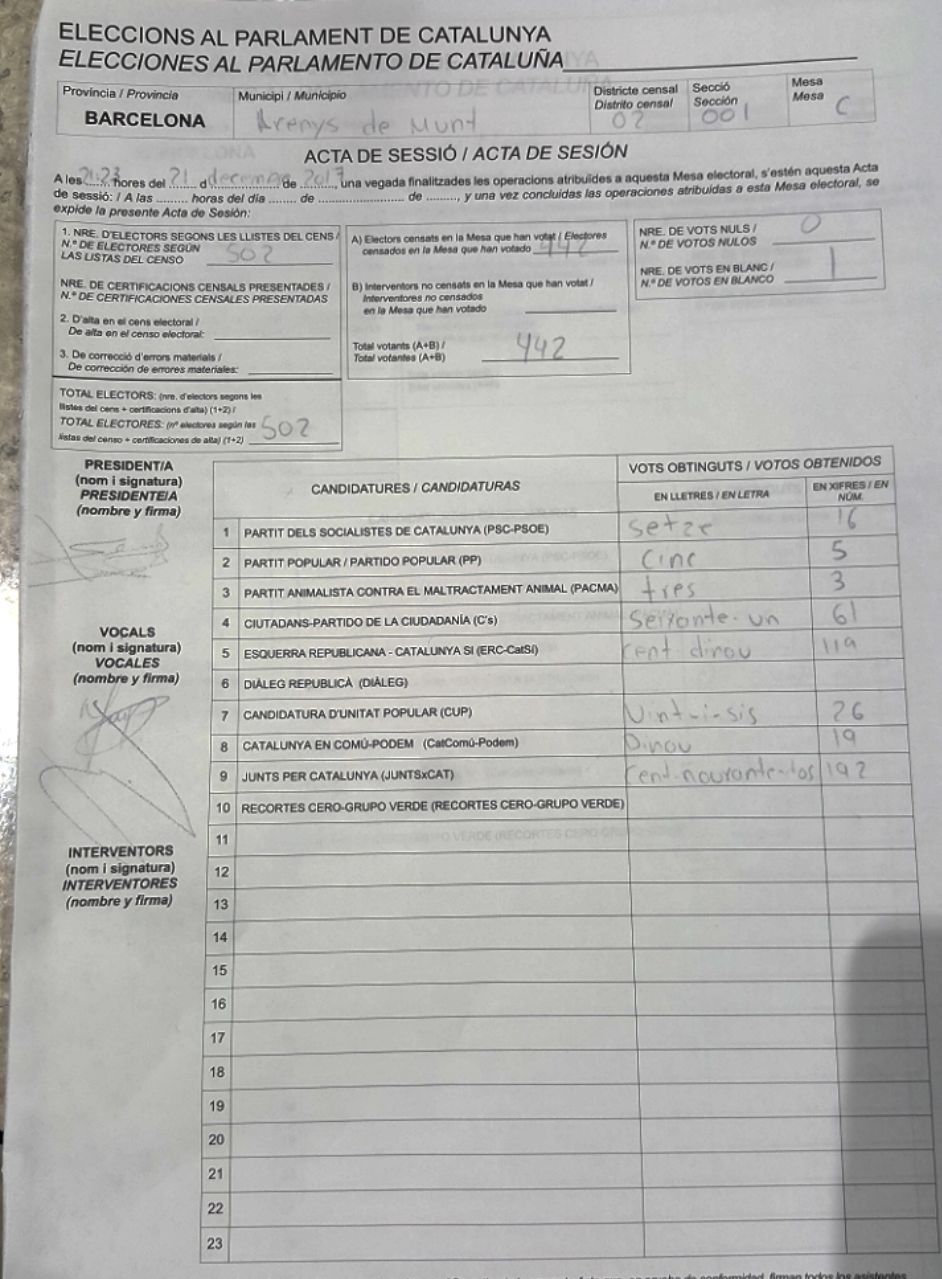 ELECCIONS AL PARLAMENT DE CATALUNYA
ELECCIONES AL PARLAMENTO DE CATALUÑA
Provincia / Provincia
BARCELONA
Municipi / Municipio
Arenys de Munt
Districte censal
Distrito censal
02
Secció
Sección
001
Mesa
Mesa
C
ACTA DE SESSIÓ / ACTA DE SESIÓN
A les 21:23 hores del 21 d decembre de 2017, una vegada finalitzades les operacions atribuïdes a aquesta Mesa electoral, s'estén aquesta Acta
de sessió: / A las ......... horas del día ........ de ......................... de ........., y una vez concluidas las operaciones atribuidas a esta Mesa electoral, se
expide la presente Acta de Sesión:
1. NRE. D'ELECTORS SEGONS LES LLISTES DEL CENS /
N.º DE ELECTORES SEGÚN
LAS LISTAS DEL CENSO 502
NRE. DE CERTIFICACIONS CENSALS PRESENTADES /
N.º DE CERTIFICACIONES CENSALES PRESENTADAS
2. D'alta en el cens electoral /
De alta en el censo electoral:
3. De correcció d'errors materials /
De corrección de errores materiales:
TOTAL ELECTORS: (nre. d'electors segons les
llistes del cens + certificacions d'alta) (1+2) /
TOTAL ELECTORES: (nº electores según las
listas del censo + certificaciones de alta) (1+2) 502
A) Electors censats en la Mesa que han votat / Electores
censados en la Mesa que han votado 442
B) Interventors no censats en la Mesa que han votat /
Interventores no censados
en la Mesa que han votado
Total votants (A+B) /
Total votantes (A+B) 442
NRE. DE VOTS NULS /
N.º DE VOTOS NULOS 0
NRE. DE VOTS EN BLANC /
N.º DE VOTOS EN BLANCO 1
PRESIDENT/A
(nom i signatura)
PRESIDENTE/A
(nombre y firma)
VOCALS
(nom i signatura)
VOCALES
(nombre y firma)
INTERVENTORS
(nom i signatura)
INTERVENTORES
(nombre y firma)
CANDIDATURES / CANDIDATURAS
VOTS OBTINGUTS / VOTOS OBTENIDOS
EN LLETRES / EN LETRA
EN XIFRES / EN
NÚM.
1 PARTIT DELS SOCIALISTES DE CATALUNYA (PSC-PSOE) setze 16
2 PARTIT POPULAR / PARTIDO POPULAR (PP) cinc 5
3 PARTIT ANIMALISTA CONTRA EL MALTRACTAMENT ANIMAL (PACMA) tres 3
4 CIUTADANS-PARTIDO DE LA CIUDADANÍA (C's) Seixante-un 61
5 ESQUERRA REPUBLICANA - CATALUNYA SI (ERC-CatSí) cent dinou 119
6 DIÀLEG REPUBLICÀ (DIÀLEG)
7 CANDIDATURA D'UNITAT POPULAR (CUP) Vint-i-sis 26
8 CATALUNYA EN COMÚ-PODEM (CatComú-Podem) Dinou 19
9 JUNTS PER CATALUNYA (JUNTSxCAT) Cent-nourante-dos 192
10 RECORTES CERO-GRUPO VERDE (RECORTES CERO-GRUPO VERDE)
11
12
13
14
15
16
17
18
19
20
21
22
23